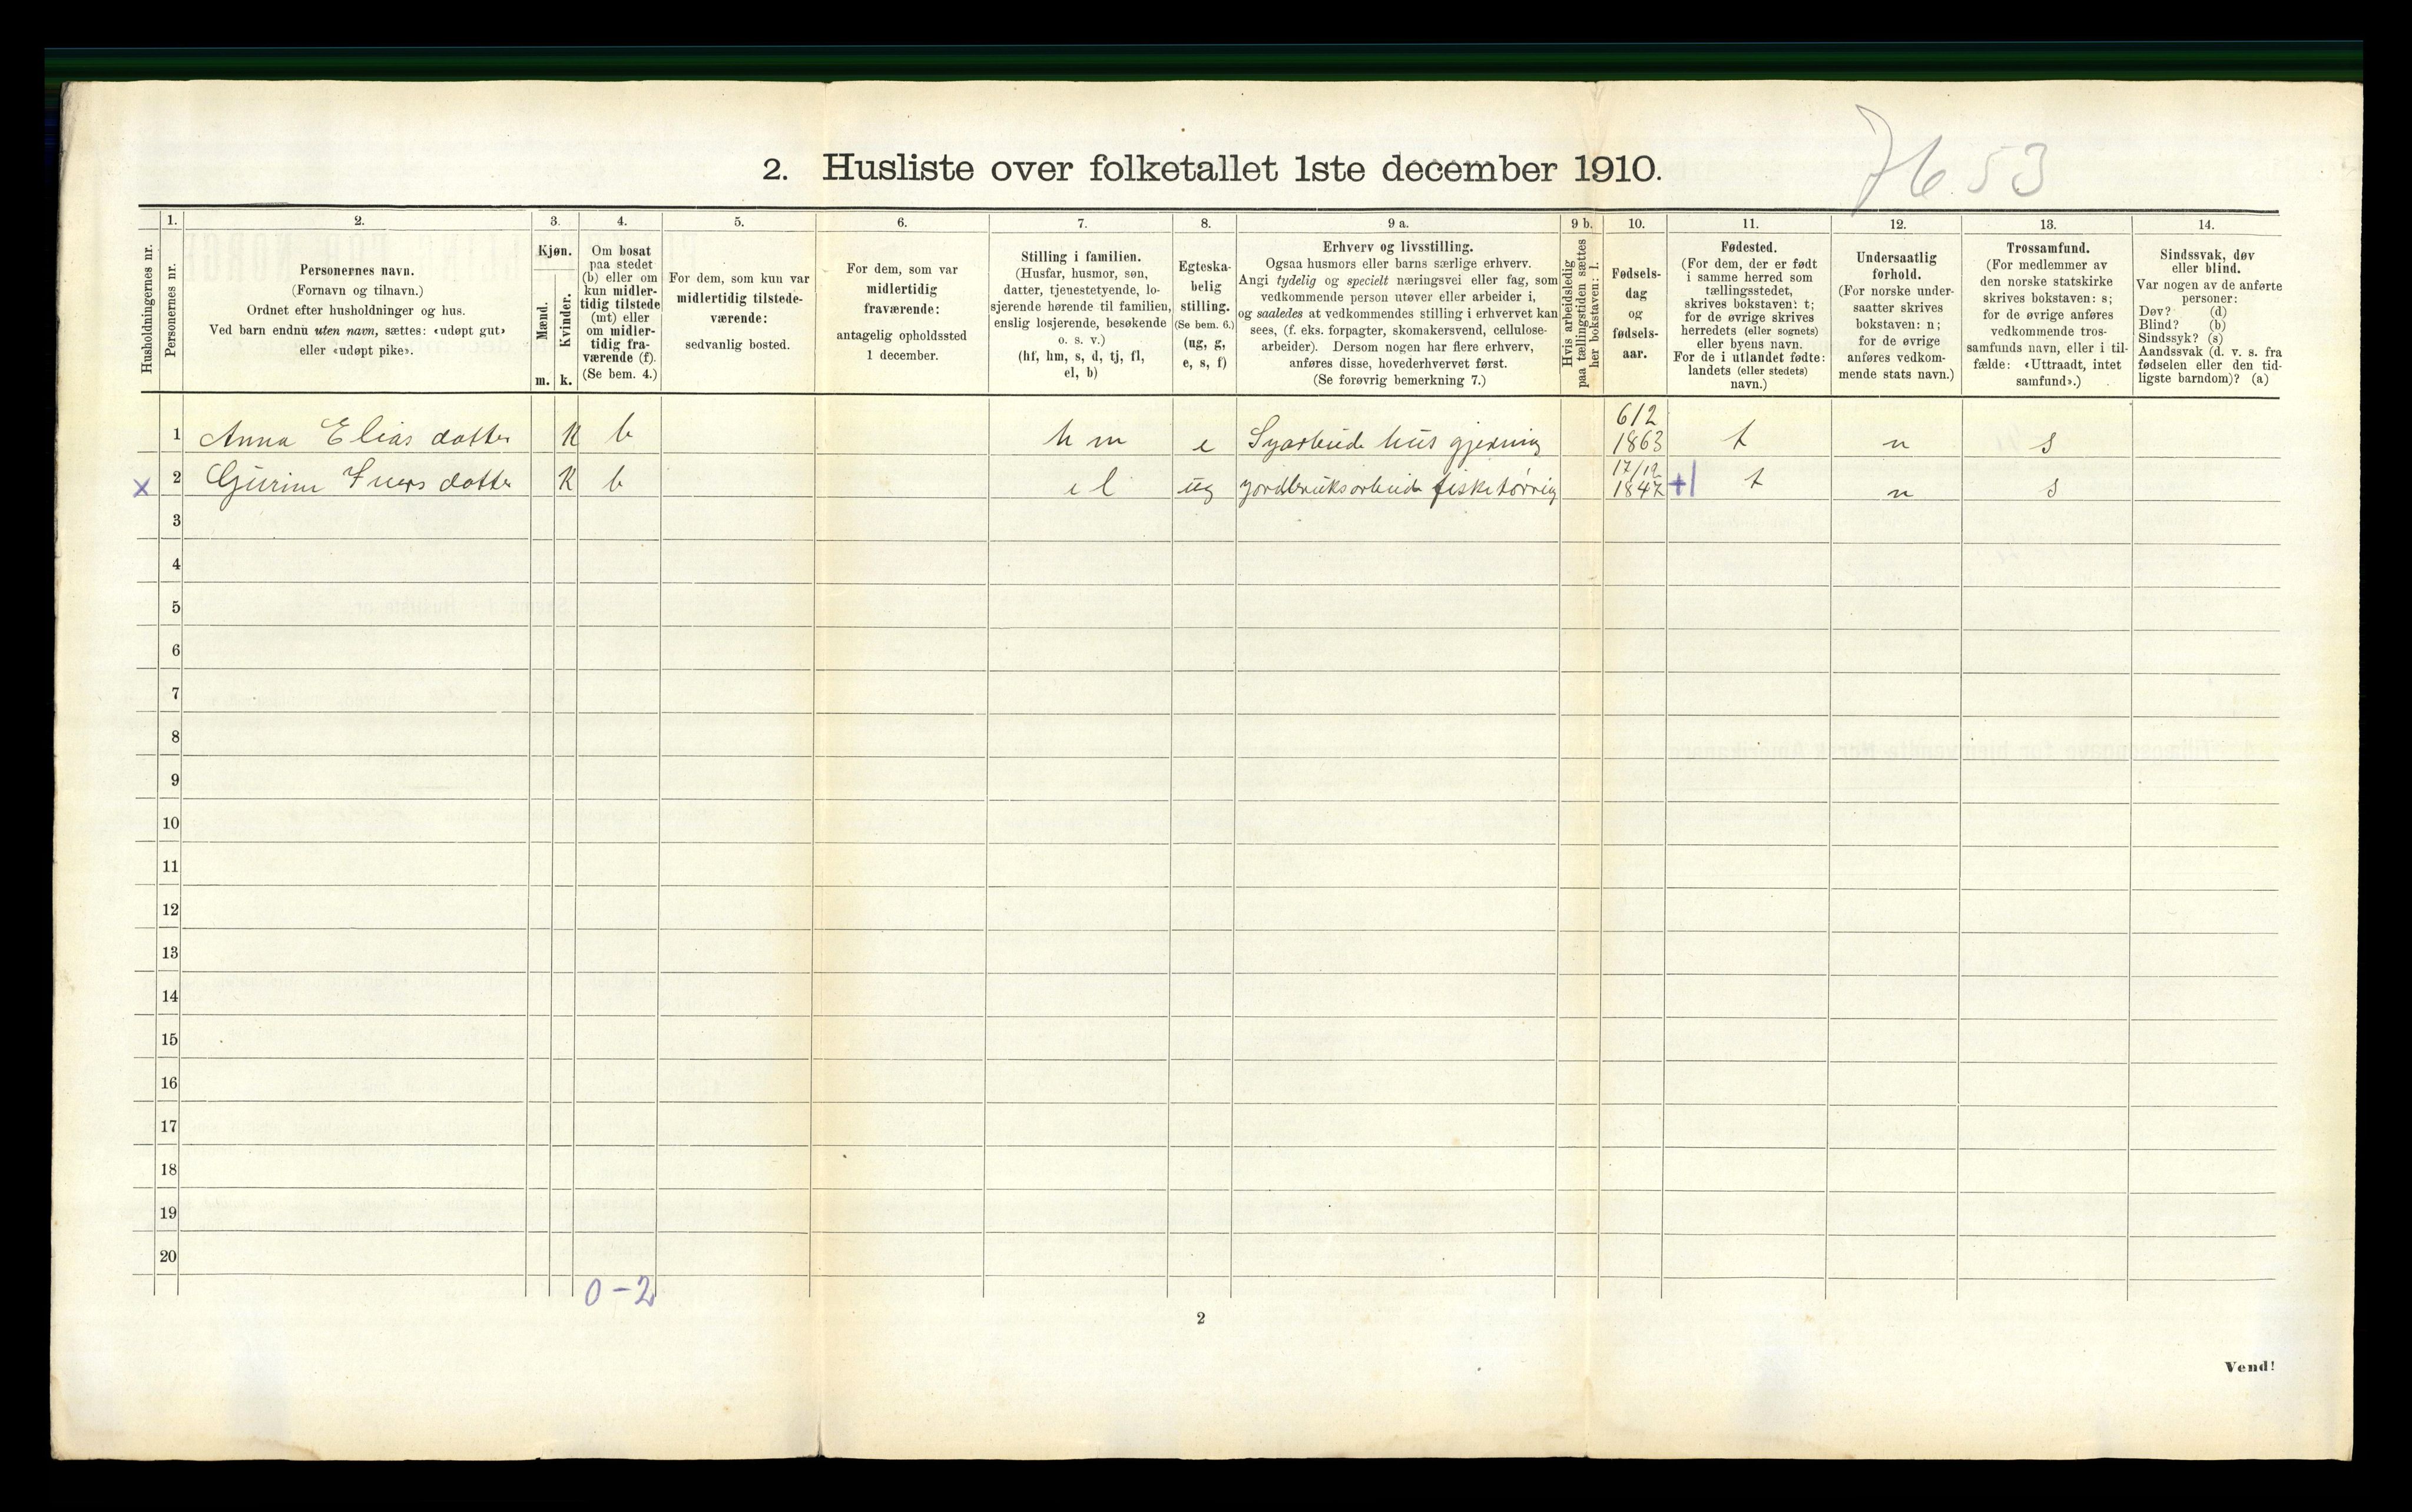 7653
2. Husliste over folketallet 1ste december 1910.
Husholdningernes nr.
1.
Personernes nr.
2.
Personernes navn.
(Fornavn og tilnavn.)
Ordnet efter husholdninger og hus.
Ved barn endnu uten navn, sættes: «udøpt gut»
eller «udøpt pike».
3.
Kjøn.
Mænd.
Kvinder.
m. k.
4.
Om bosat
paa stedet
(b) eller om
kun midler-
tidig tilstede
(mt) eller
om midler-
tidig fra-
værende (f).
(Se bem. 4.)
5.
For dem, som kun var
midlertidig tilstede-
værende:
sedvanlig bosted.
6.
For dem, som var
midlertidig
fraværende:
antagelig opholdssted
1 december.
7.
Stilling i familien.
(Husfar, husmor, søn,
datter, tjenestetyende, lo-
sjerende hørende til familien,
enslig losjerende, besøkende
o. s. v.)
(hf, hm, s, d, tj, fl,
el, b)
8.
Egteska-
belig
stilling.
(Se bem. 6.)
(ug, g,
e, s, f)
9 a.
Erhverv og livsstilling.
Ogsaa husmors eller barns særlige erhverv.
Angi tydelig og specielt næringsvei eller fag, som
vedkommende person utøver eller arbeider i,
og saaledes at vedkommendes stilling i erhvervet kan
sees, (f. eks. forpagter, skomakersvend, cellulose-
arbeider). Dersom nogen har flere erhverv,
anføres disse, hovederhvervet først.
(Se forøvrig bemerkning 7.)
9 b.
Hvis arbeidsledig
paa tællingstiden sættes
her bokstaven: l.
10.
Fødsels-
dag
og
fødsels-
aar.
11.
Fødested.
(For dem, der er født
i samme herred som
tællingsstedet,
skrives bokstaven: t;
for de øvrige skrives
herredets (eller sognets)
eller byens navn.
For de i utlandet fødte:
landets (eller stedets)
navn.)
12.
Undersaatlig
forhold.
(For norske under-
saatter skrives
bokstaven: n;
for de øvrige
anføres vedkom-
mende stats navn.)
13.
Trossamfund.
(For medlemmer av
den norske statskirke
skrives bokstaven: s;
for de øvrige anføres
vedkommende tros-
samfunds navn, eller i til-
fælde: «Uttraadt, intet
samfund».)
14.
Sindssvak, døv
eller blind.
Var nogen av de anførte
personer:
Døv? (d)
Blind? (b)
Sindssyk? (s)
Aandssvak (d. v. s. fra
fødselen eller den tid-
ligste barndom)? (a)
1 Anna Elias datter K b h m e Syarbeide hus gjerning 6/2 1863 t n s
x 2 Gurine Ivers datter K b e l ug jordbruksarbeide fisketørring 17/12 1847 +1 t n s
3
4
5
6
7
8
9
10
11
12
13
14
15
16
17
18
19
20
0-2
2
Vend!